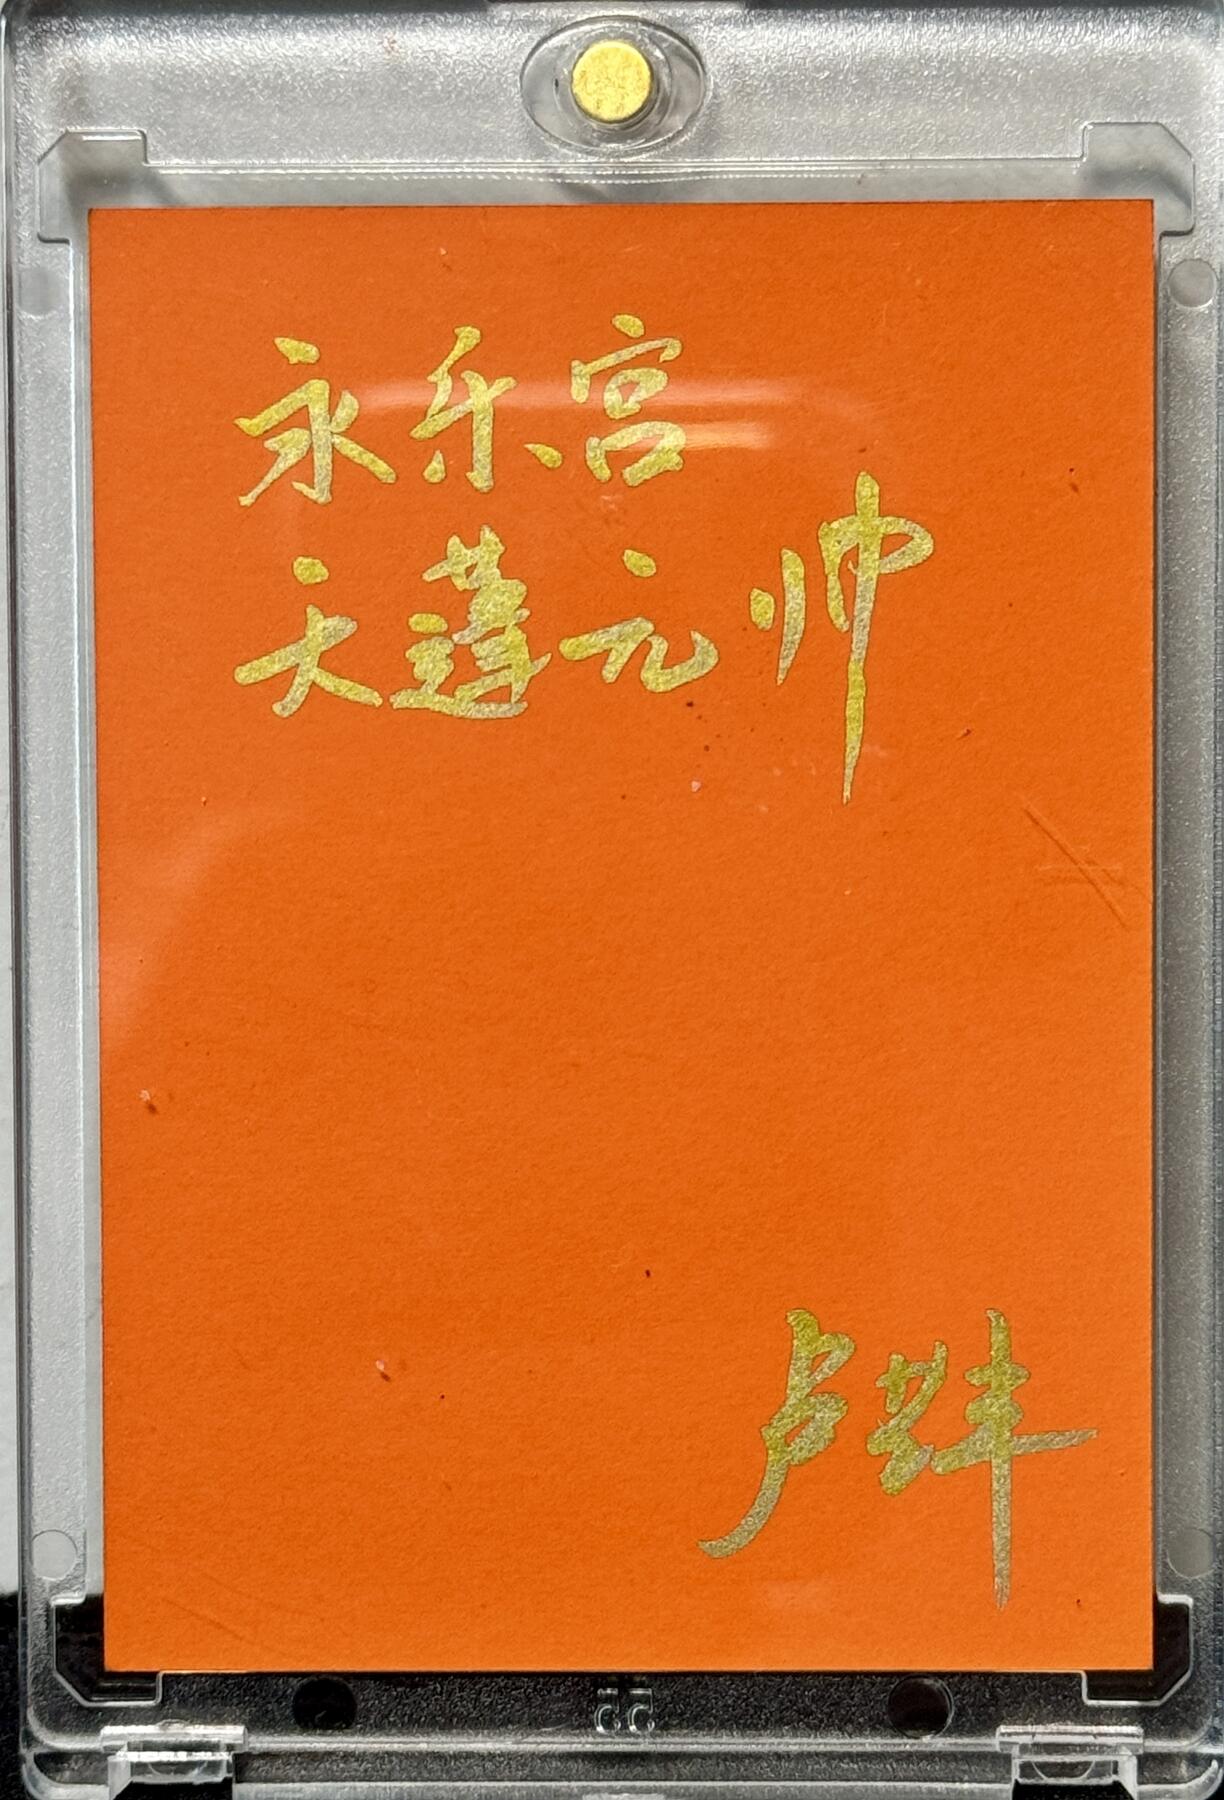 永乐宫
天蓬元帅
卢